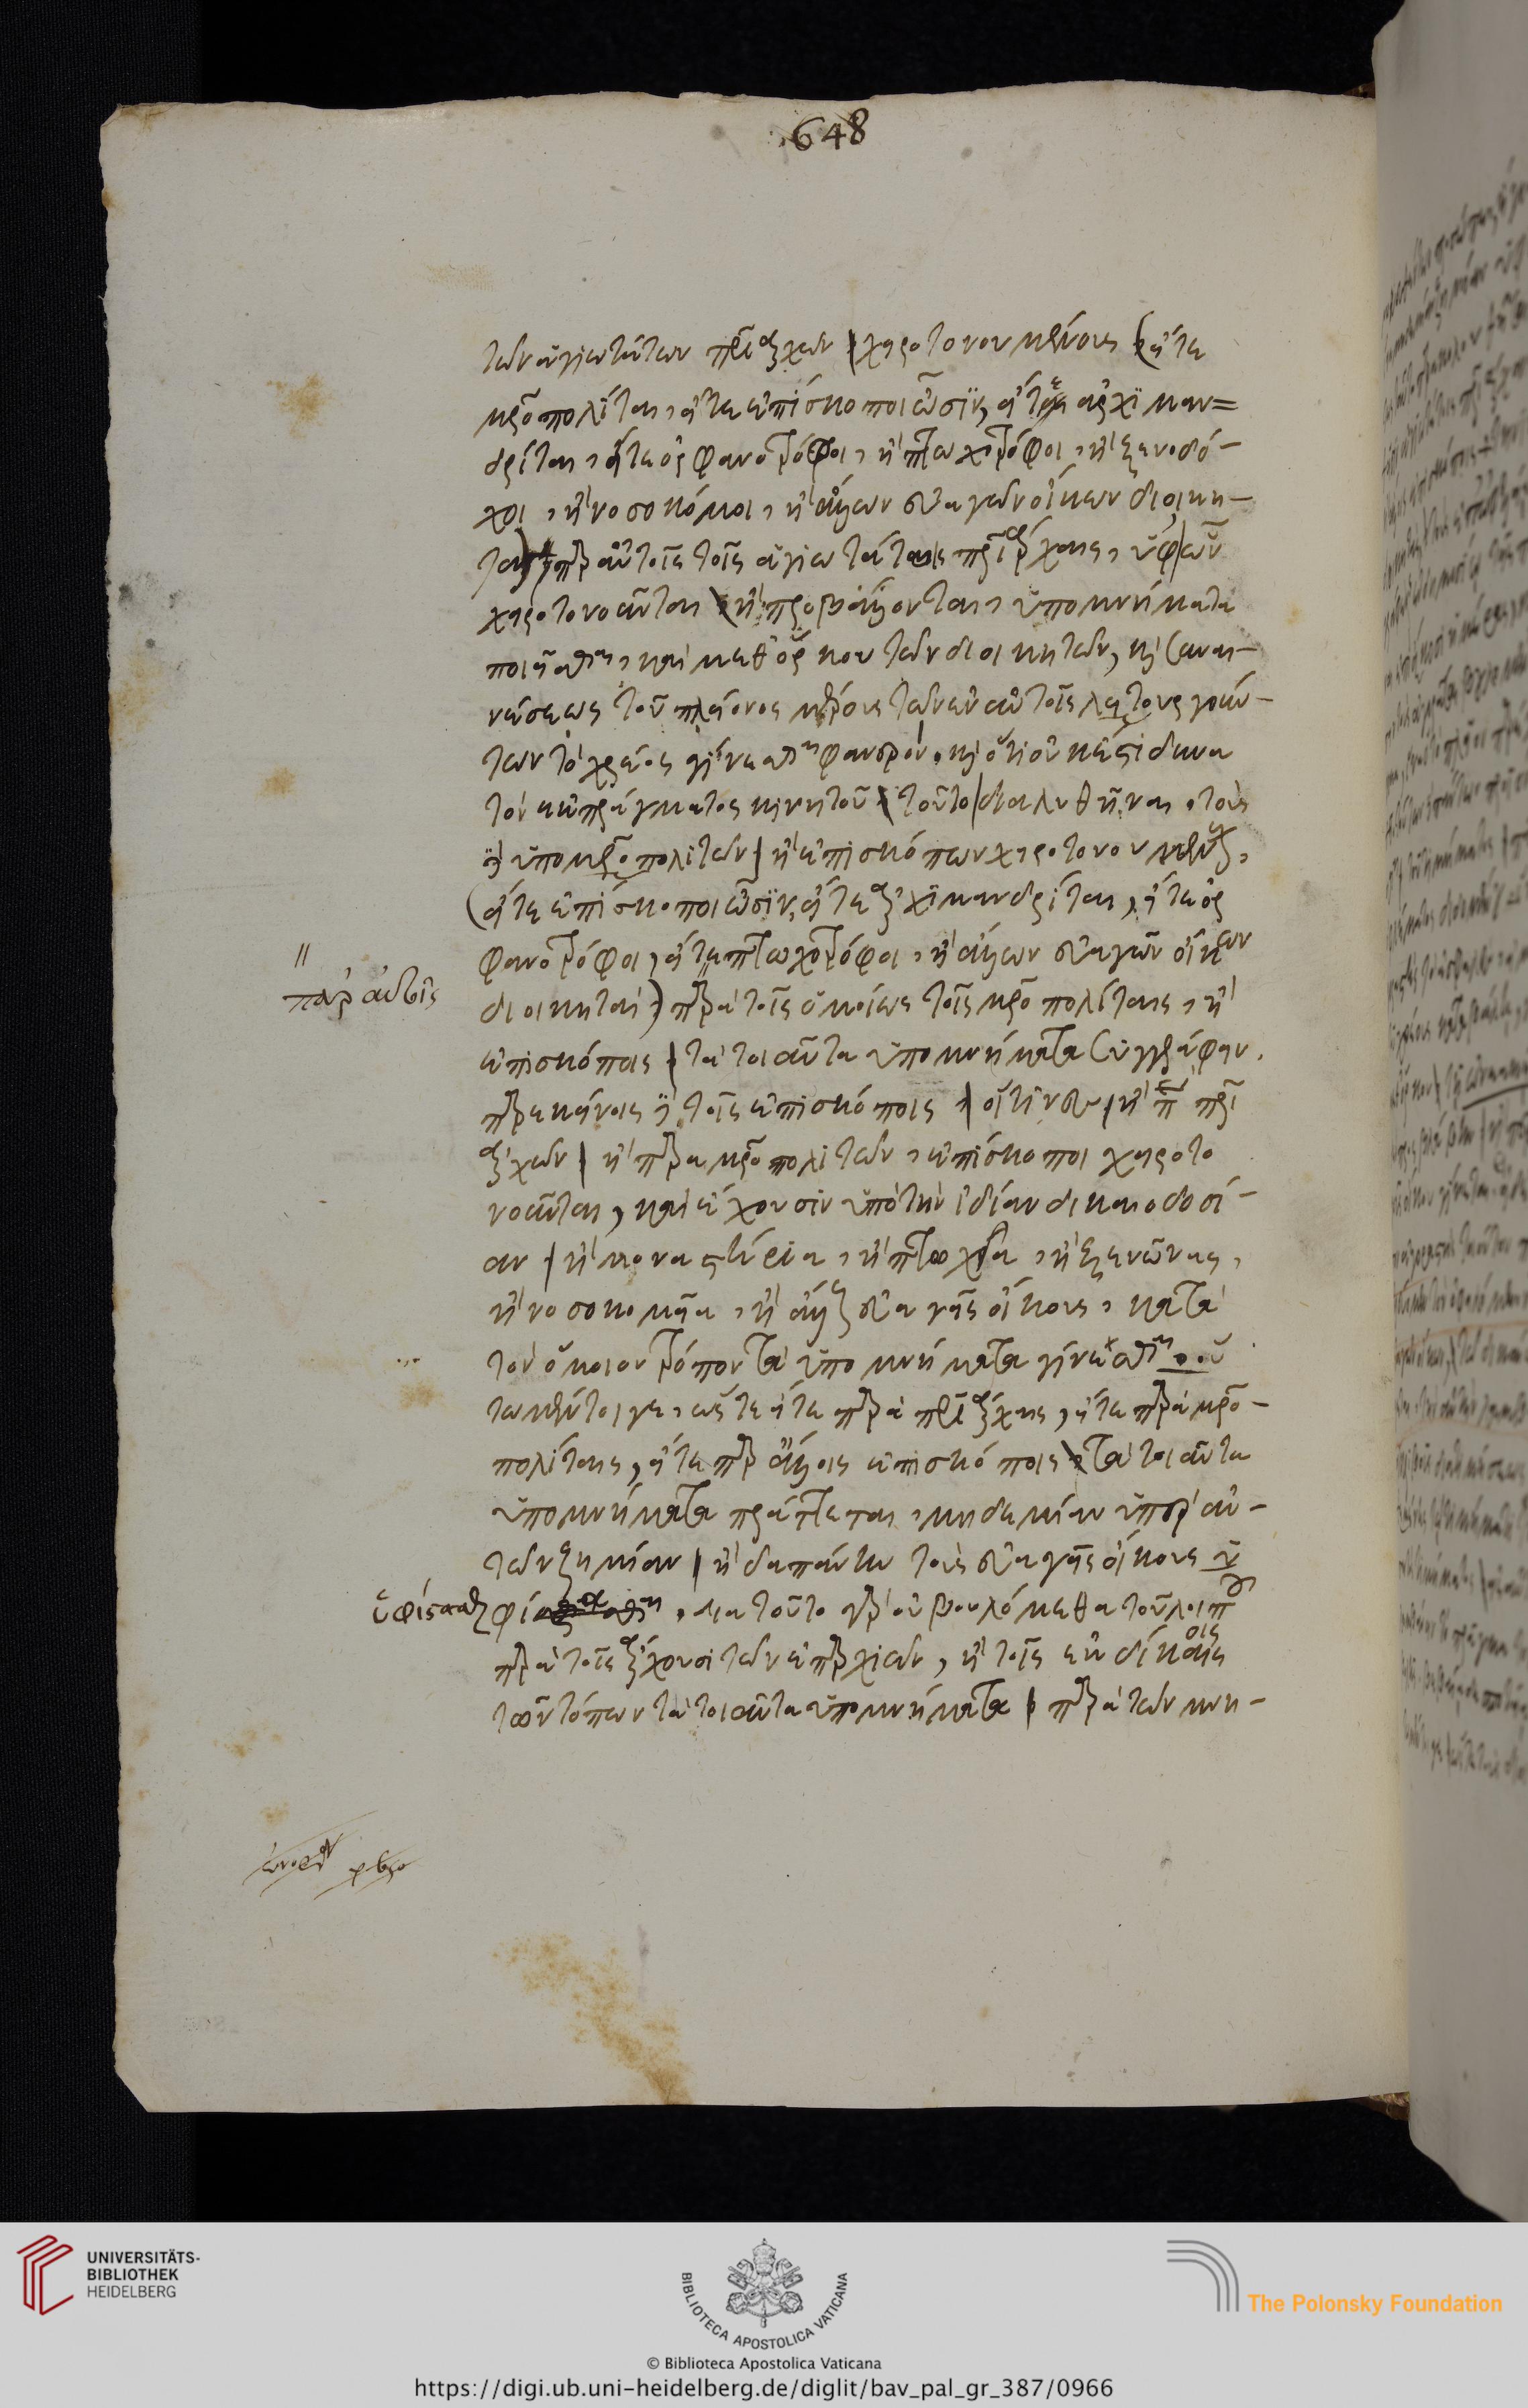 648
τῶν ἁγιωτάτων πριαρχῶν χειροτονουμένους (εἴτε
μροπολῖται, εἴτε ἐπίσκοποι ὦσϊν, εἴτε ἀρχϊμαν=
δρίται, εἴτε ὀρφανοτρόφοι, ἢ πτωχοτρόφοι, ἢ ξενοδό-
χοι, ἢ νοσοκόμοι, ἢ ἄλλων εὐαγῶν οἴκων διοικη-
ταὶ) παρ αὐτοῖς τοῖς ἁγιωτάτοις πριάρχαις, ὑφ ὧν
χειροτονοῦνται ἢ προβάλλονται, ὑπομνήματα
ποιεῖσθαι, καὶ μεθ ὅρκου τῶν διοικητῶν, καὶ συναι-
νέσεως τοῦ πλείονος μέρους τῶν ἐν αὐτοῖς λειτουργούν-
των τὸ χρέος γίνεσθαι φανερόν, καὶ ὅτι οὐκ ἔστι δυνα
τὸν ἐκ πράγματος κινητοῦ τοῦτο διαλυθῆναι, τοὺς
δὲ ὑπὸ μροπολιτῶν ἢ ἐπισκόπων χειροτονουμένους,
(εἴτε ἐπίσκοποι ὦσϊν, εἴτε ἀρχϊμανδρίται, εἴτε ὀρ
φανοτρόφοι, εἴτε πτωχοτρόφοι, ἢ ἄλλων εὐαγῶν οἴκων
παρ αὐτοῖς
διοικηταὶ) παρὰ τοῖς ὁμοίως τοῖς μροπολίταις, ἢ
ἐπισκόποις τὰ τοιαῦτα ὑπομνήματα συγγράφειν,
παρ ἐκείνοις δὲ τοῖς ἐπισκόποις, οἵτινες ἢ π πρι
αρχῶν ἢ παρὰ μροπολιτῶν, ἐπίσκοποι χειροτο
νοῦνται, καὶ ἔχουσιν ὑπὸ τὴν ἰδίαν δικαιοδοσί-
αν ἢ μοναστήρια, ἢ πτωχεῖα, ἢ ξενῶνας,
ἢ νοσοκομεῖα, ἢ ἄλλους εὐαγεῖς οἴκους, κατὰ
τὸν ὅμοιον τρόπον τὰ ὑπομνήματα γίνεσθαι, οὕ
τω μέντοιγε, ὥστε εἴτε παρὰ πριάρχαις, εἴτε παρὰ μρο-
πολίταις, εἴτε παρ ἄλλοις ἐπισκόποις τὰ τοιαῦτα
ὑπομνήματα πράττεται, μηδεμίαν ὑπὲρ αὐ-
τῶν ζημίαν ἢ δαπάνην τοὺς εὐαγεῖς οἴκους ὑ
ὑφίστασθαι φί, διὰ τοῦτο γὰρ οὐ βουλόμεθα τοῦ λοιποῦ
παρὰ τοῖς ἄρχουσι τῶν ἐπαρχιῶν, ἢ τοῖς ἐκδίκοις
τῶν τόπων τὰ τοιαῦτα ὑπομνήματα παρὰ τῶν μνη-
UNIVERSITÄTS-
BIBLIOTHEK
HEIDELBERG
BIBLIOTECA APOSTOLICA VATICANA
The Polonsky Foundation
© Biblioteca Apostolica Vaticana
https://digi.ub.uni-heidelberg.de/diglit/bav_pal_gr_387/0966